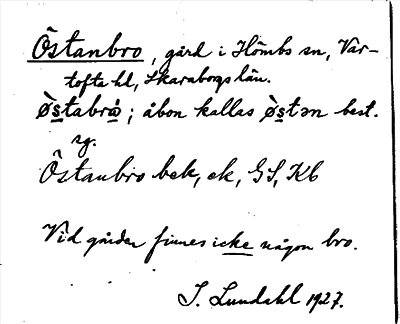 Östanbro, gård i Hömbs sn, Var-
tofta hd, Skaraborgs län.
ø̀stabrǿ; åbon kallas ø̀stən best.
sg.
Östanbro bek, ek, GS, Kb
Vid gården finnes icke någon bro.
I. Lundahl 1927.